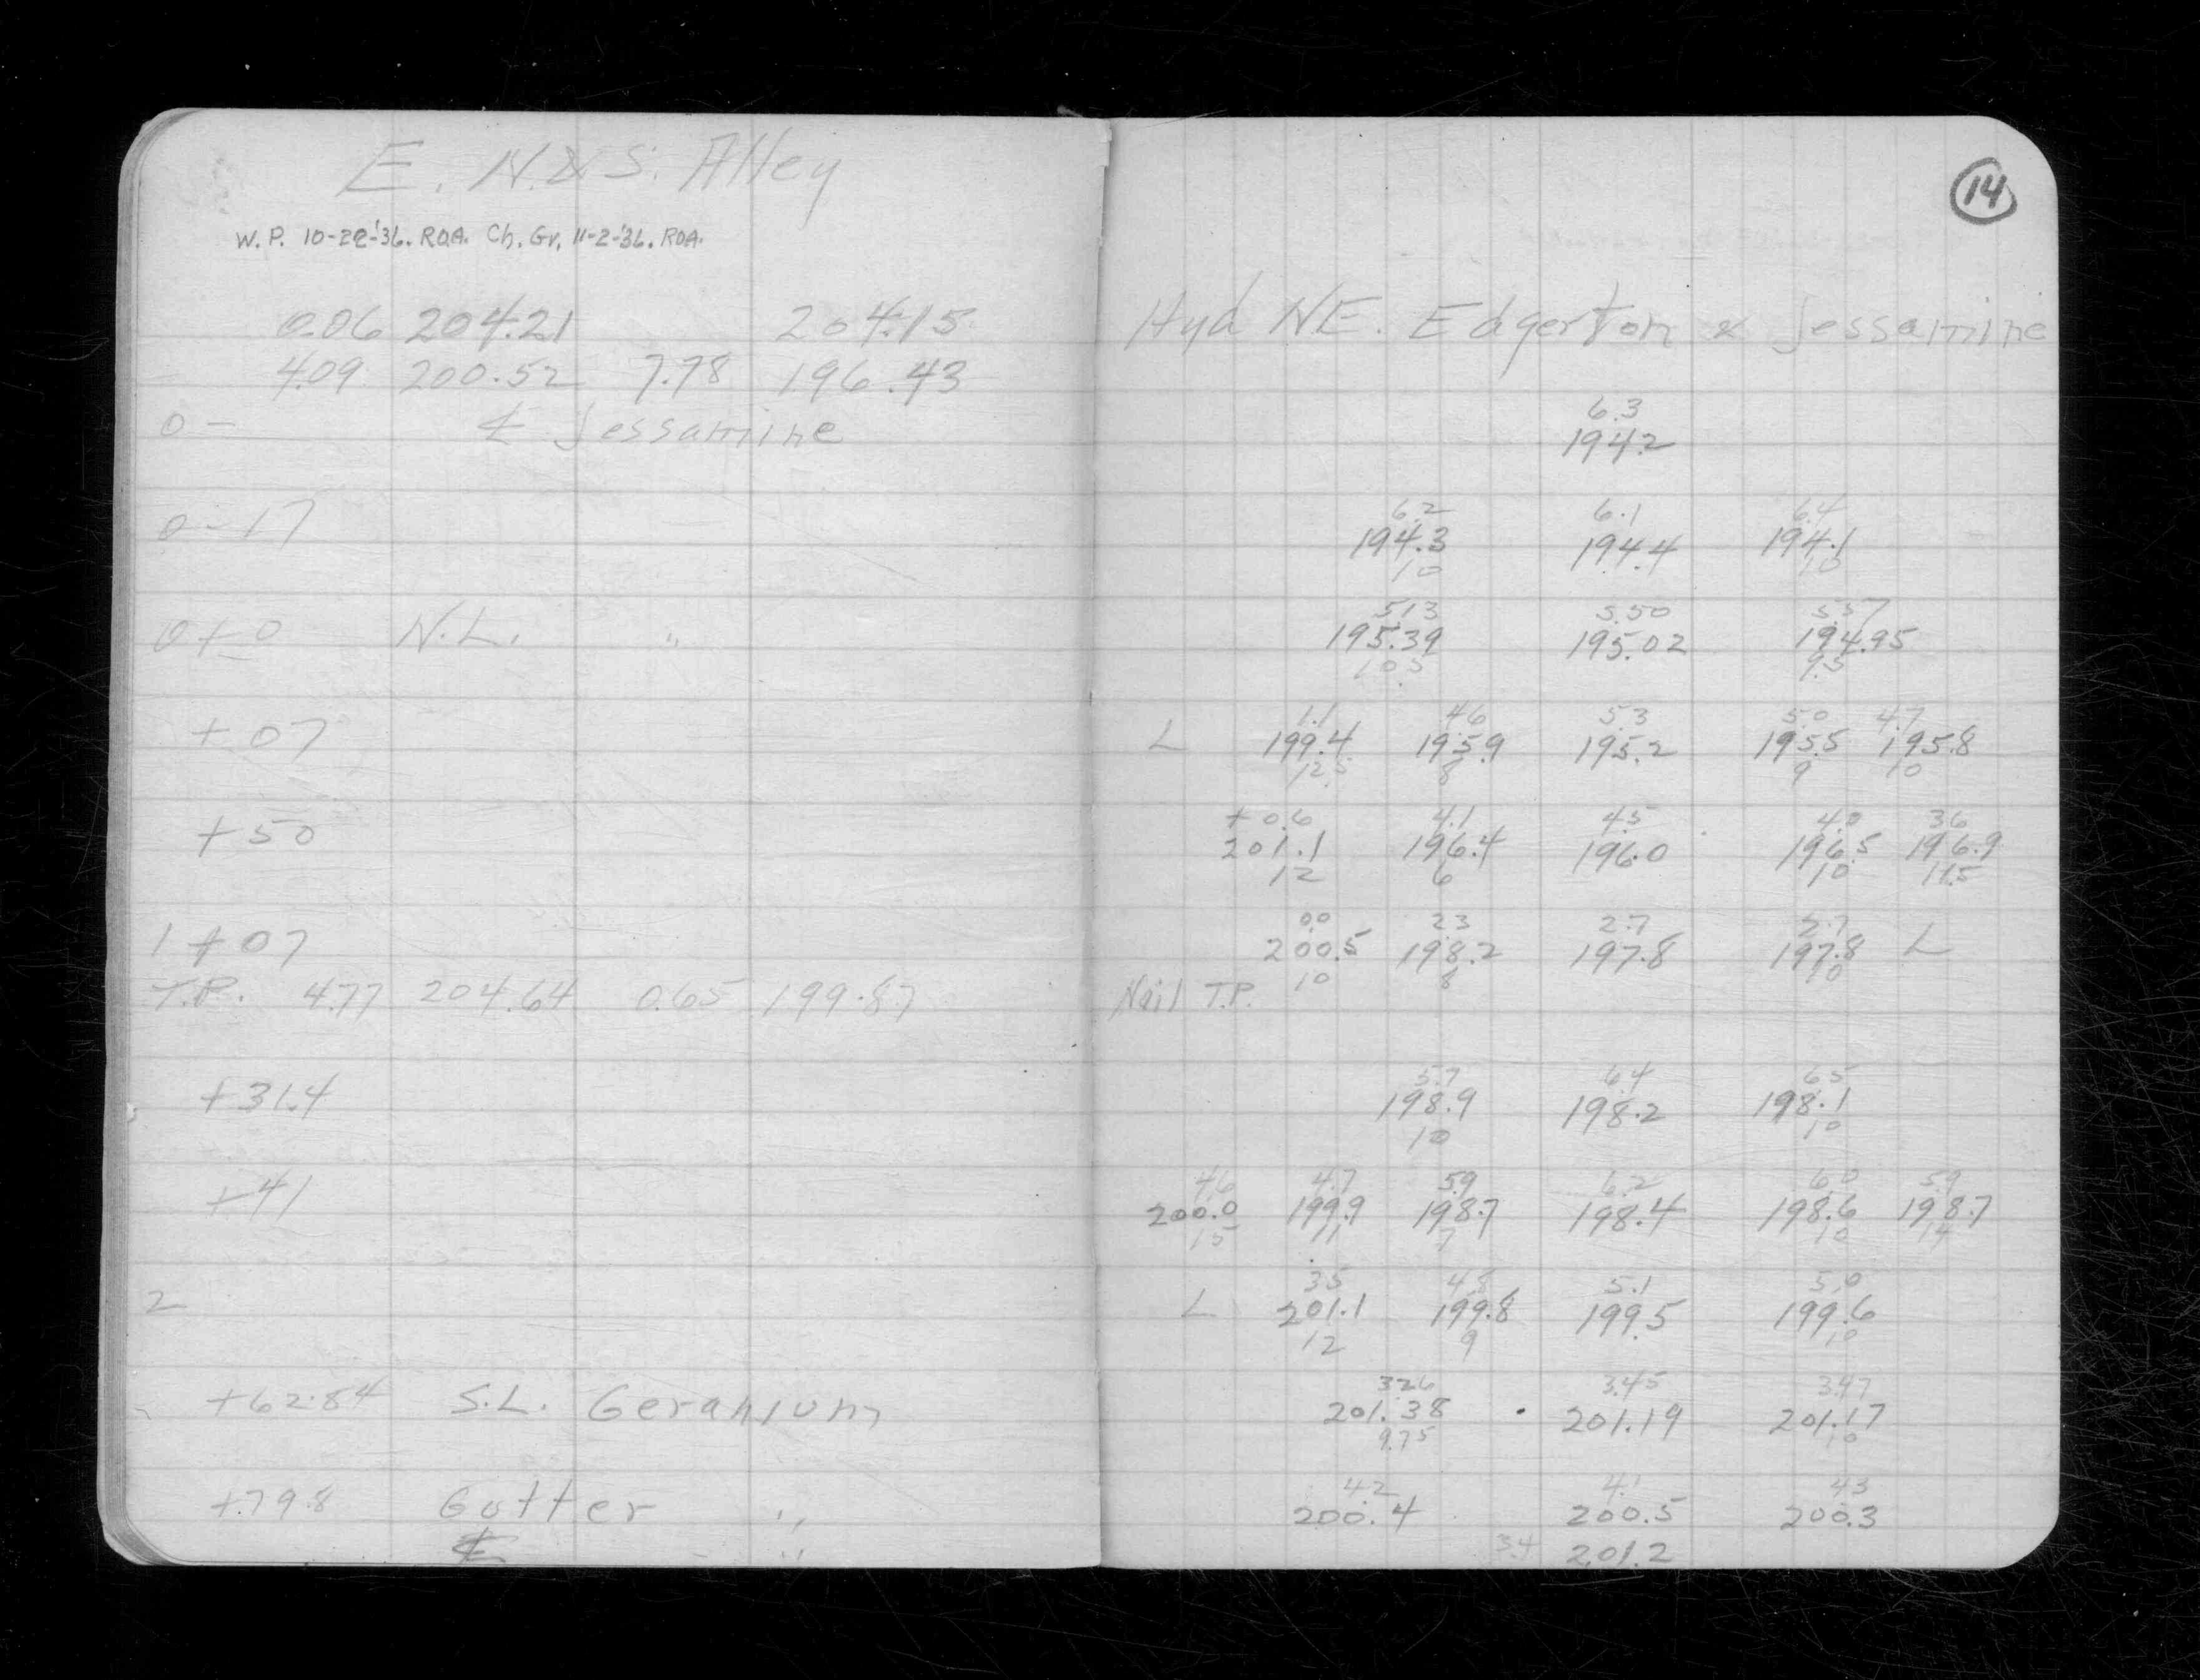 E. N.&S. Alley
W.P. 10-22-'36. R.O.A. Ch. Gr. 11-2-'36. R.O.A.
14
0.06 204.21 204.15 Hyd NE. Edgerton & Jessamine
4.09 200.52 7.78 196.43
6.3
0 - ℄ Jessamine 194.2
6.2 6.1 6.4
0-17 194.3 194.4 194.1
10 10
5.13 5.50 5.57
0+0 N.L. " 195.39 195.02 194.95
10.5 9.5
1.1 4.6 5.3 5.0 4.7
+07 L 199.4 195.9 195.2 195.5 195.8
12.5 8 9 10
+0.6 4.1 4.5 4.0 3.6
+50 201.1 196.4 196.0 196.5 196.9
12 6 10 11.5
0.0 2.3 2.7 2.7
1+07 200.5 198.2 197.8 197.8 L
10 8 10
T.P. 4.77 204.64 0.65 199.87 Nail T.P.
5.7 6.4 6.5
+31.4 198.9 198.2 198.1
10 10
4.6 4.7 5.9 6.2 6.0 5.9
+41 200.0 199.9 198.7 198.4 198.6 198.7
15 11 7 10 14
3.5 4.8 5.1 5.0
2 L 201.1 199.8 199.5 199.6
12 9 10
3.26 3.45 3.47
+62.84 S.L. Geranium 201.38 201.19 201.17
9.75 10
4.2 4.1 4.3
+79.8 Gutter " 200.4 200.5 200.3
℄ " 3.4 201.2